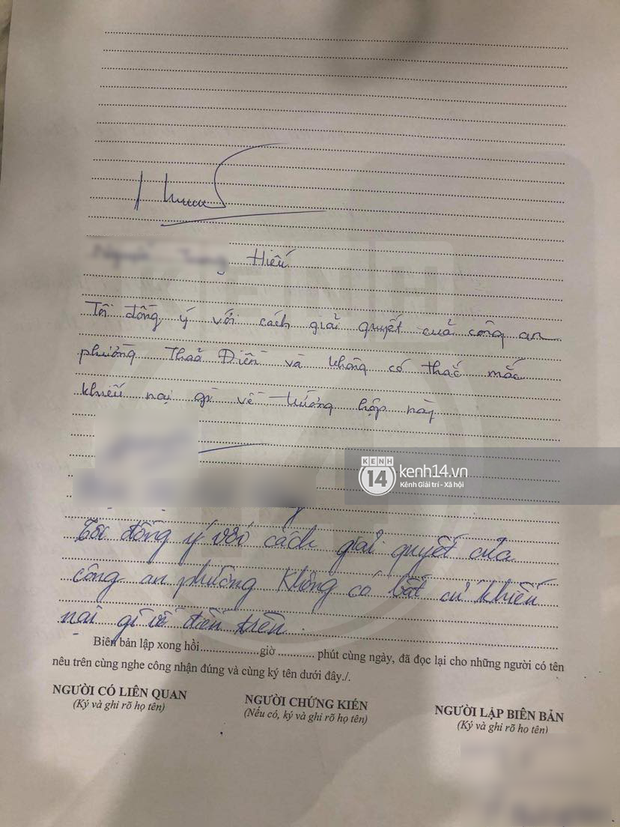 Hiếu
Tôi đồng ý với cách giải quyết của công an
phường Thảo Điền và không có thắc mắc
khiếu nại gì về trường hợp này
KENH
14
kenh14.vn
Kênh Giải trí - Xã hội
Tôi đồng ý với cách giải quyết của
công an phường không có bất cứ khiếu
nại gì về điều trên.
Biên bản lập xong hồi..............giờ ........... phút cùng ngày, đã đọc lại cho những người có tên
nêu trên cùng nghe công nhận đúng và cùng ký tên dưới đây./.
NGƯỜI CÓ LIÊN QUAN NGƯỜI CHỨNG KIẾN NGƯỜI LẬP BIÊN BẢN
(Ký và ghi rõ họ tên) (Nếu có, ký và ghi rõ họ tên) (Ký và ghi rõ họ tên)